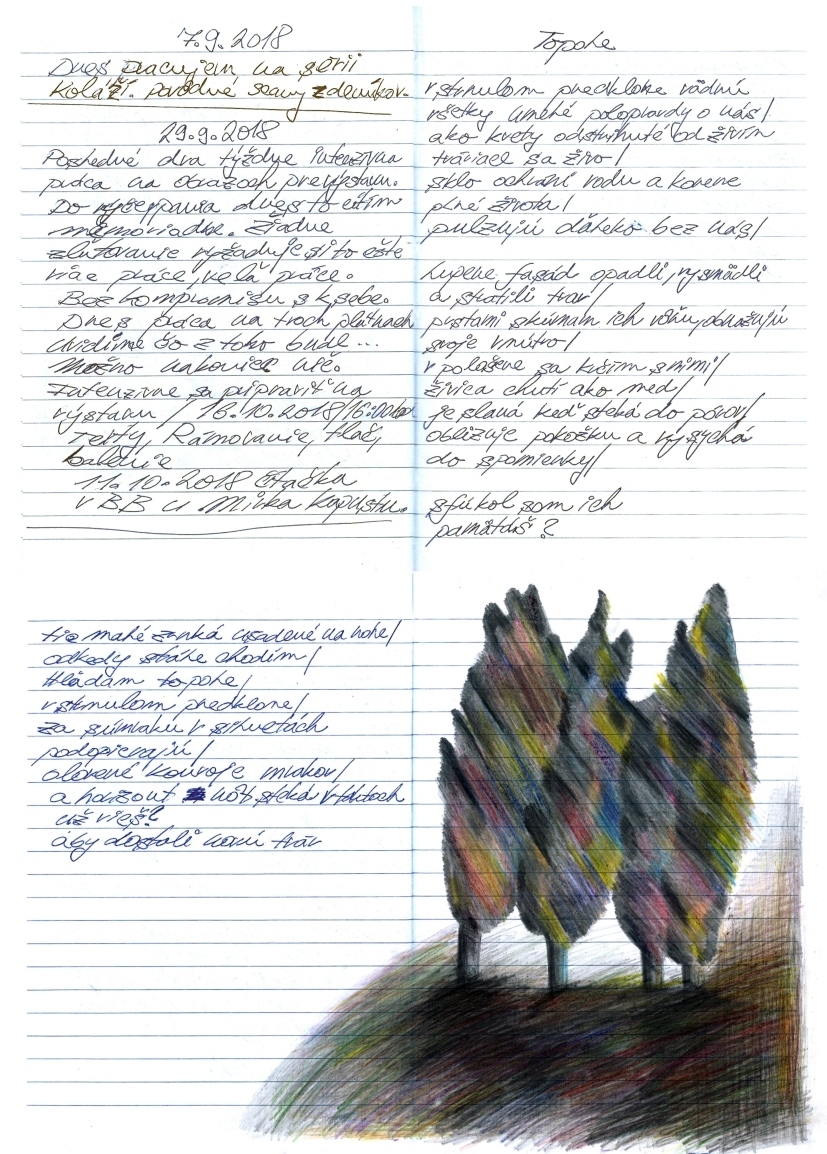 7.9.2018
Dnes pracujem na sérii
koláží. pôvodné scany z denníkov.
29.9.2018
Posledné dva týždne intenzívna
práca na obrazoch pre výstavu.
Do vyčerpania dnes to cítim
mimoriadne. Žiadne
zľutovanie vyžaduje si to ešte
viac práce, veľa práce.
Bez kompromisu s k sebe.
Dnes práca na troch plátnach
uvidíme čo z toho bude ...
Možno nakoniec nič.
Intenzívne sa pripraviť na
výstavu / 16.10.2018/16:00 hod
Texty, Rámovanie, tlač,
balenie
11.10.2018 čítačka
v BB u Mirka Kapustu.
Topole
v strnulom predklone vädnú
všetky umelé polopravdy o nás/
ako kvety odstrihnuté od živín
tváriace sa živo/
sklo ochráni vodu a korene
plné života/
pulzujú ďaleko bez nás/
lupene fasád opadli, vysmädli
a stratili tvar/
prstami skúmam ich vôňu, obnažujú
svoje vnútro/
v polosne sa kúšim s nimi/
živica chutí ako med/
je slaná keď steká do pórov/
oblizuje pokožku a vysychá
do spomienky/
sfúkol som ich
pamätáš?
tie malé zrnká usadené na hole/
odkedy stále chodím/
Hľadám topole/
v strnulom predklone/
za súmraku v siluetách
podopierajú/
olovené kontúry mrakov/
a horizont nôt steká v taktoch
už vieš?
aby dostali nový tvar